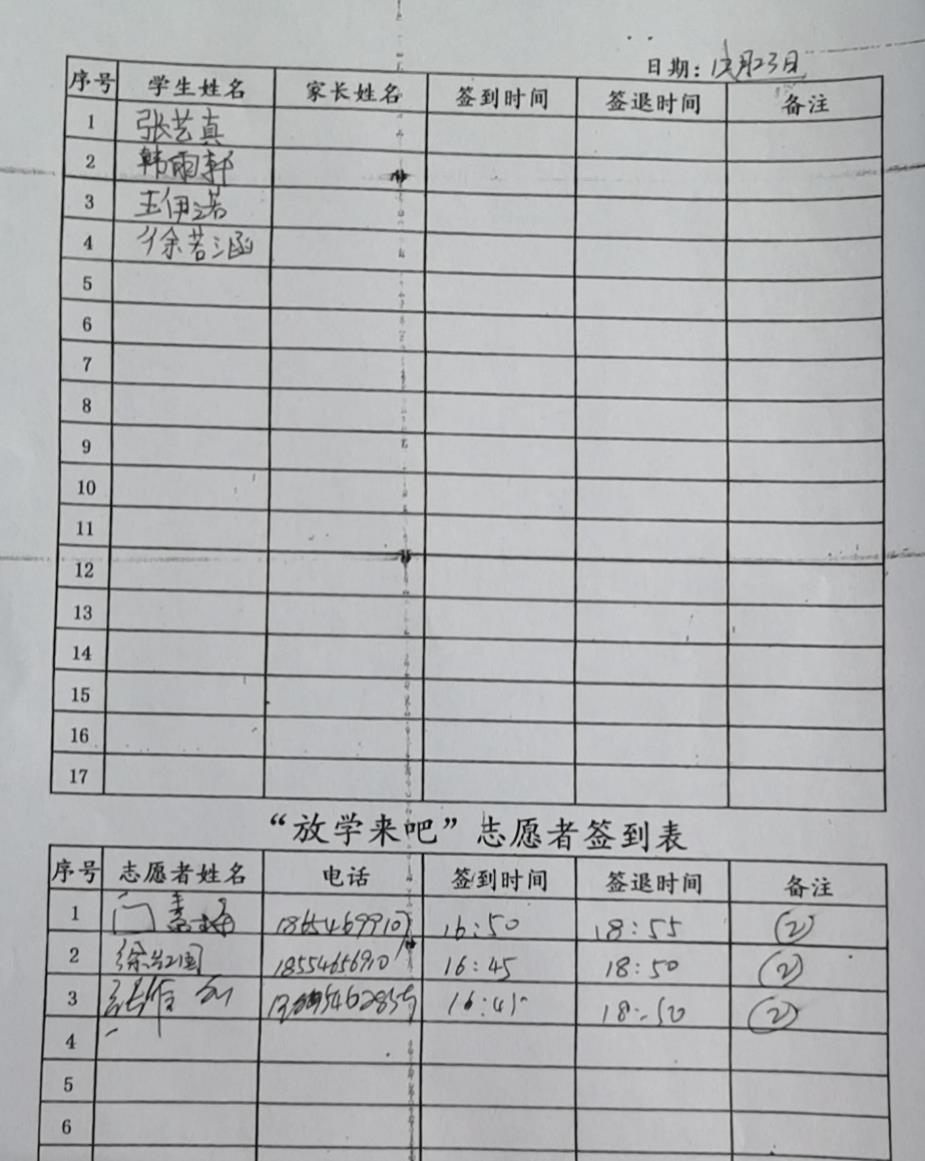 日期：12月23日
序号 学生姓名 家长姓名 签到时间 签退时间 备注
1 张艺真
2 韩雨轩
3 王伊诺
4 徐若涵
5
6
7
8
9
10
11
12
13
14
15
16
17
“放学来吧”志愿者签到表
序号 志愿者姓名 电话 签到时间 签退时间 备注
1 16:50 18:55 ②
2 18554656910 16:45 18:50 ②
3 16:45 18:50 ②
4
5
6